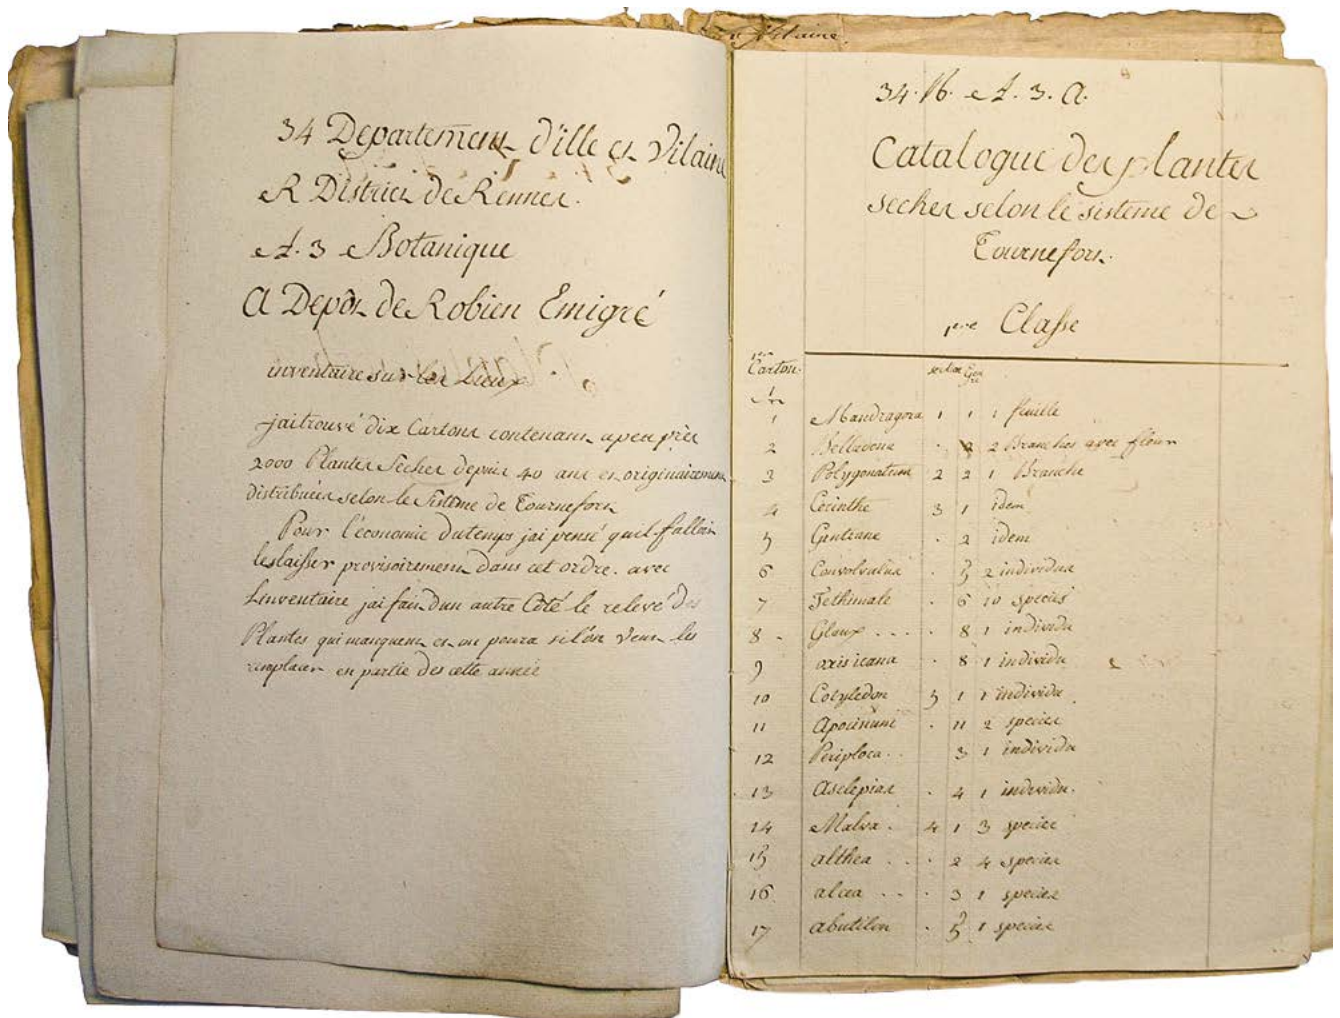 Vilaine
34 Departement d'ille et Vilaine
R District de Rennes.
A. 3 Botanique
A Depôt de Robien Emigré
inventaire sur les Lieux
jai trouvé dix Cartons contenant apeu près
2000 Plantes Seches depuis 40 ans et originairement
distribuées selon le Sistême de Tournefort
Pour l'économie du temps jai pensé quil fallait
les laisser provisoirement dans cet ordre. avec
L'inventaire jai fait dun autre Côté le relevé des
Plantes qui manquent et on poura si lon veut les
remplacer en partie des cette année
34. R. A. 3. A.
Catalogue des plantes
seches selon le sisteme de
Tournefort.
1ere Classe
1er Carton
section Genre
1 Mandragora 1 1 1 feuille
2 Belladona . 2 2 Branches avec fleur
3 Polygonatum 2 2 1 Branche
4 Cerinthe 3 1 idem
5 Gentiane . 2 idem
6 Convolvulus . 5 2 individus
7 Tethimale . 6 10 species
8 Glaux . . . . 8 1 individu
9 . 8 1 individu
10 Cotyledon 5 1 1 individu
11 Apocinum . 11 2 species
12 Periploca . . 3 1 individu
13 Asclepias . 4 1 individu.
14 Malva . 4 1 3 species
15 althea . . . 2 4 species
16 alcea . . . 3 1 species
17 abutilon . 5 1 species